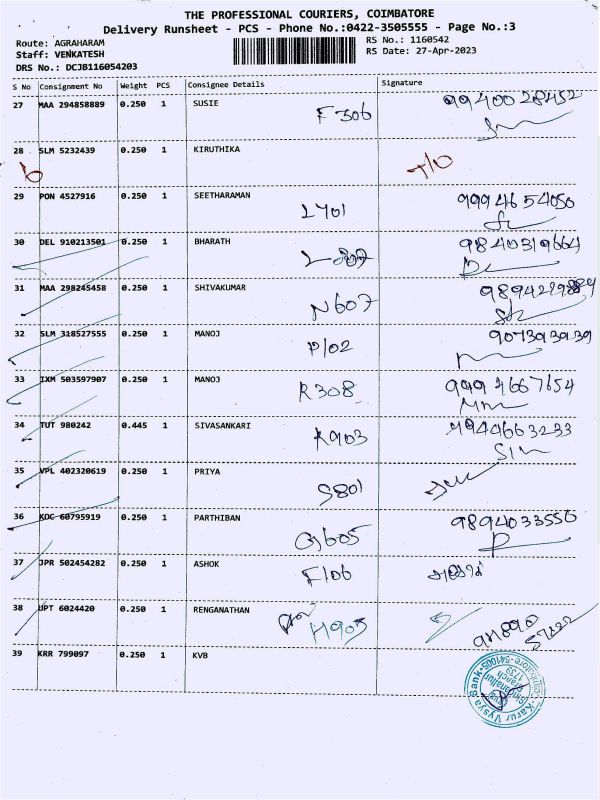 THE PROFESSIONAL COURIERS, COIMBATORE
Delivery Runsheet - PCS - Phone No.:0422-3505555 - Page No.:3
Route: AGRAHARAM
RS No.: 1160542
Staff: VENKATESH
RS Date: 27-Apr-2023
DRS No.: DCJB116054203
S No Consignment No Weight PCS Consignee Details Signature
27 MAA 294858889 0.250 1 SUSIE F306 9940028452
28 SLM 5232439 0.250 1 KIRUTHIKA
29 PON 4527916 0.250 1 SEETHARAMAN L401 9994654050
30 DEL 910213501 0.250 1 BHARATH 9840319664
31 MAA 298245458 0.250 1 SHIVAKUMAR N607
32 SLM 318527555 0.250 1 MANOJ P102 907393939
33 IXM 503597907 0.250 1 MANOJ R308 9994667654
34 TUT 980242 0.445 1 SIVASANKARI K903 9944663233
35 VPL 402320619 0.250 1 PRIYA S801
36 KDC 60795919 0.250 1 PARTHIBAN G605 9894033550
37 JPR 502454282 0.250 1 ASHOK F106 அசோக்
38 UPT 6024420 0.250 1 RENGANATHAN H905
39 KRR 799097 0.250 1 KVB
Karur Vysya Bank
Coimbatore-641005
Singanallur
Branch
1739